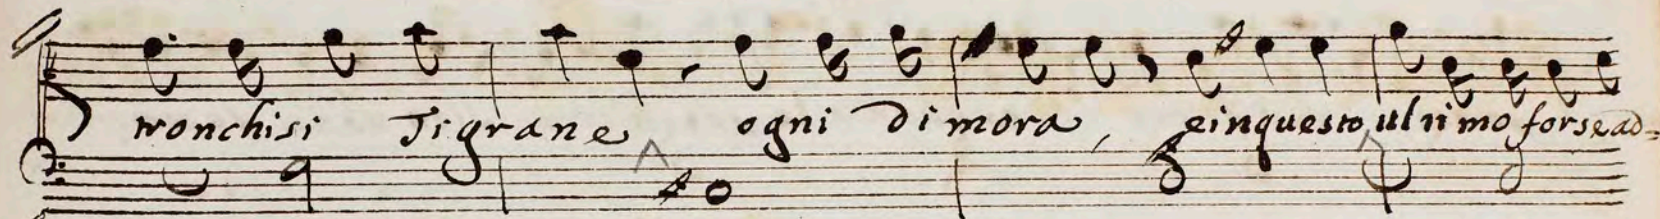 tronchisi Tigrane ogni dimora, einquesto ultimo forse ad=